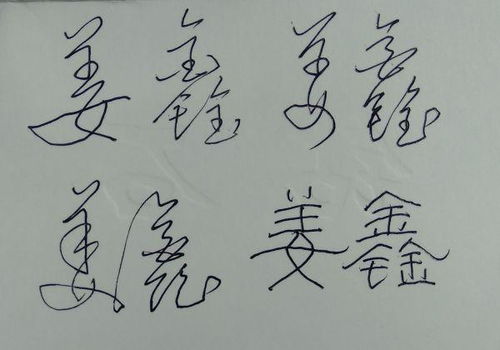 姜鑫 姜鑫
姜鑫 姜鑫